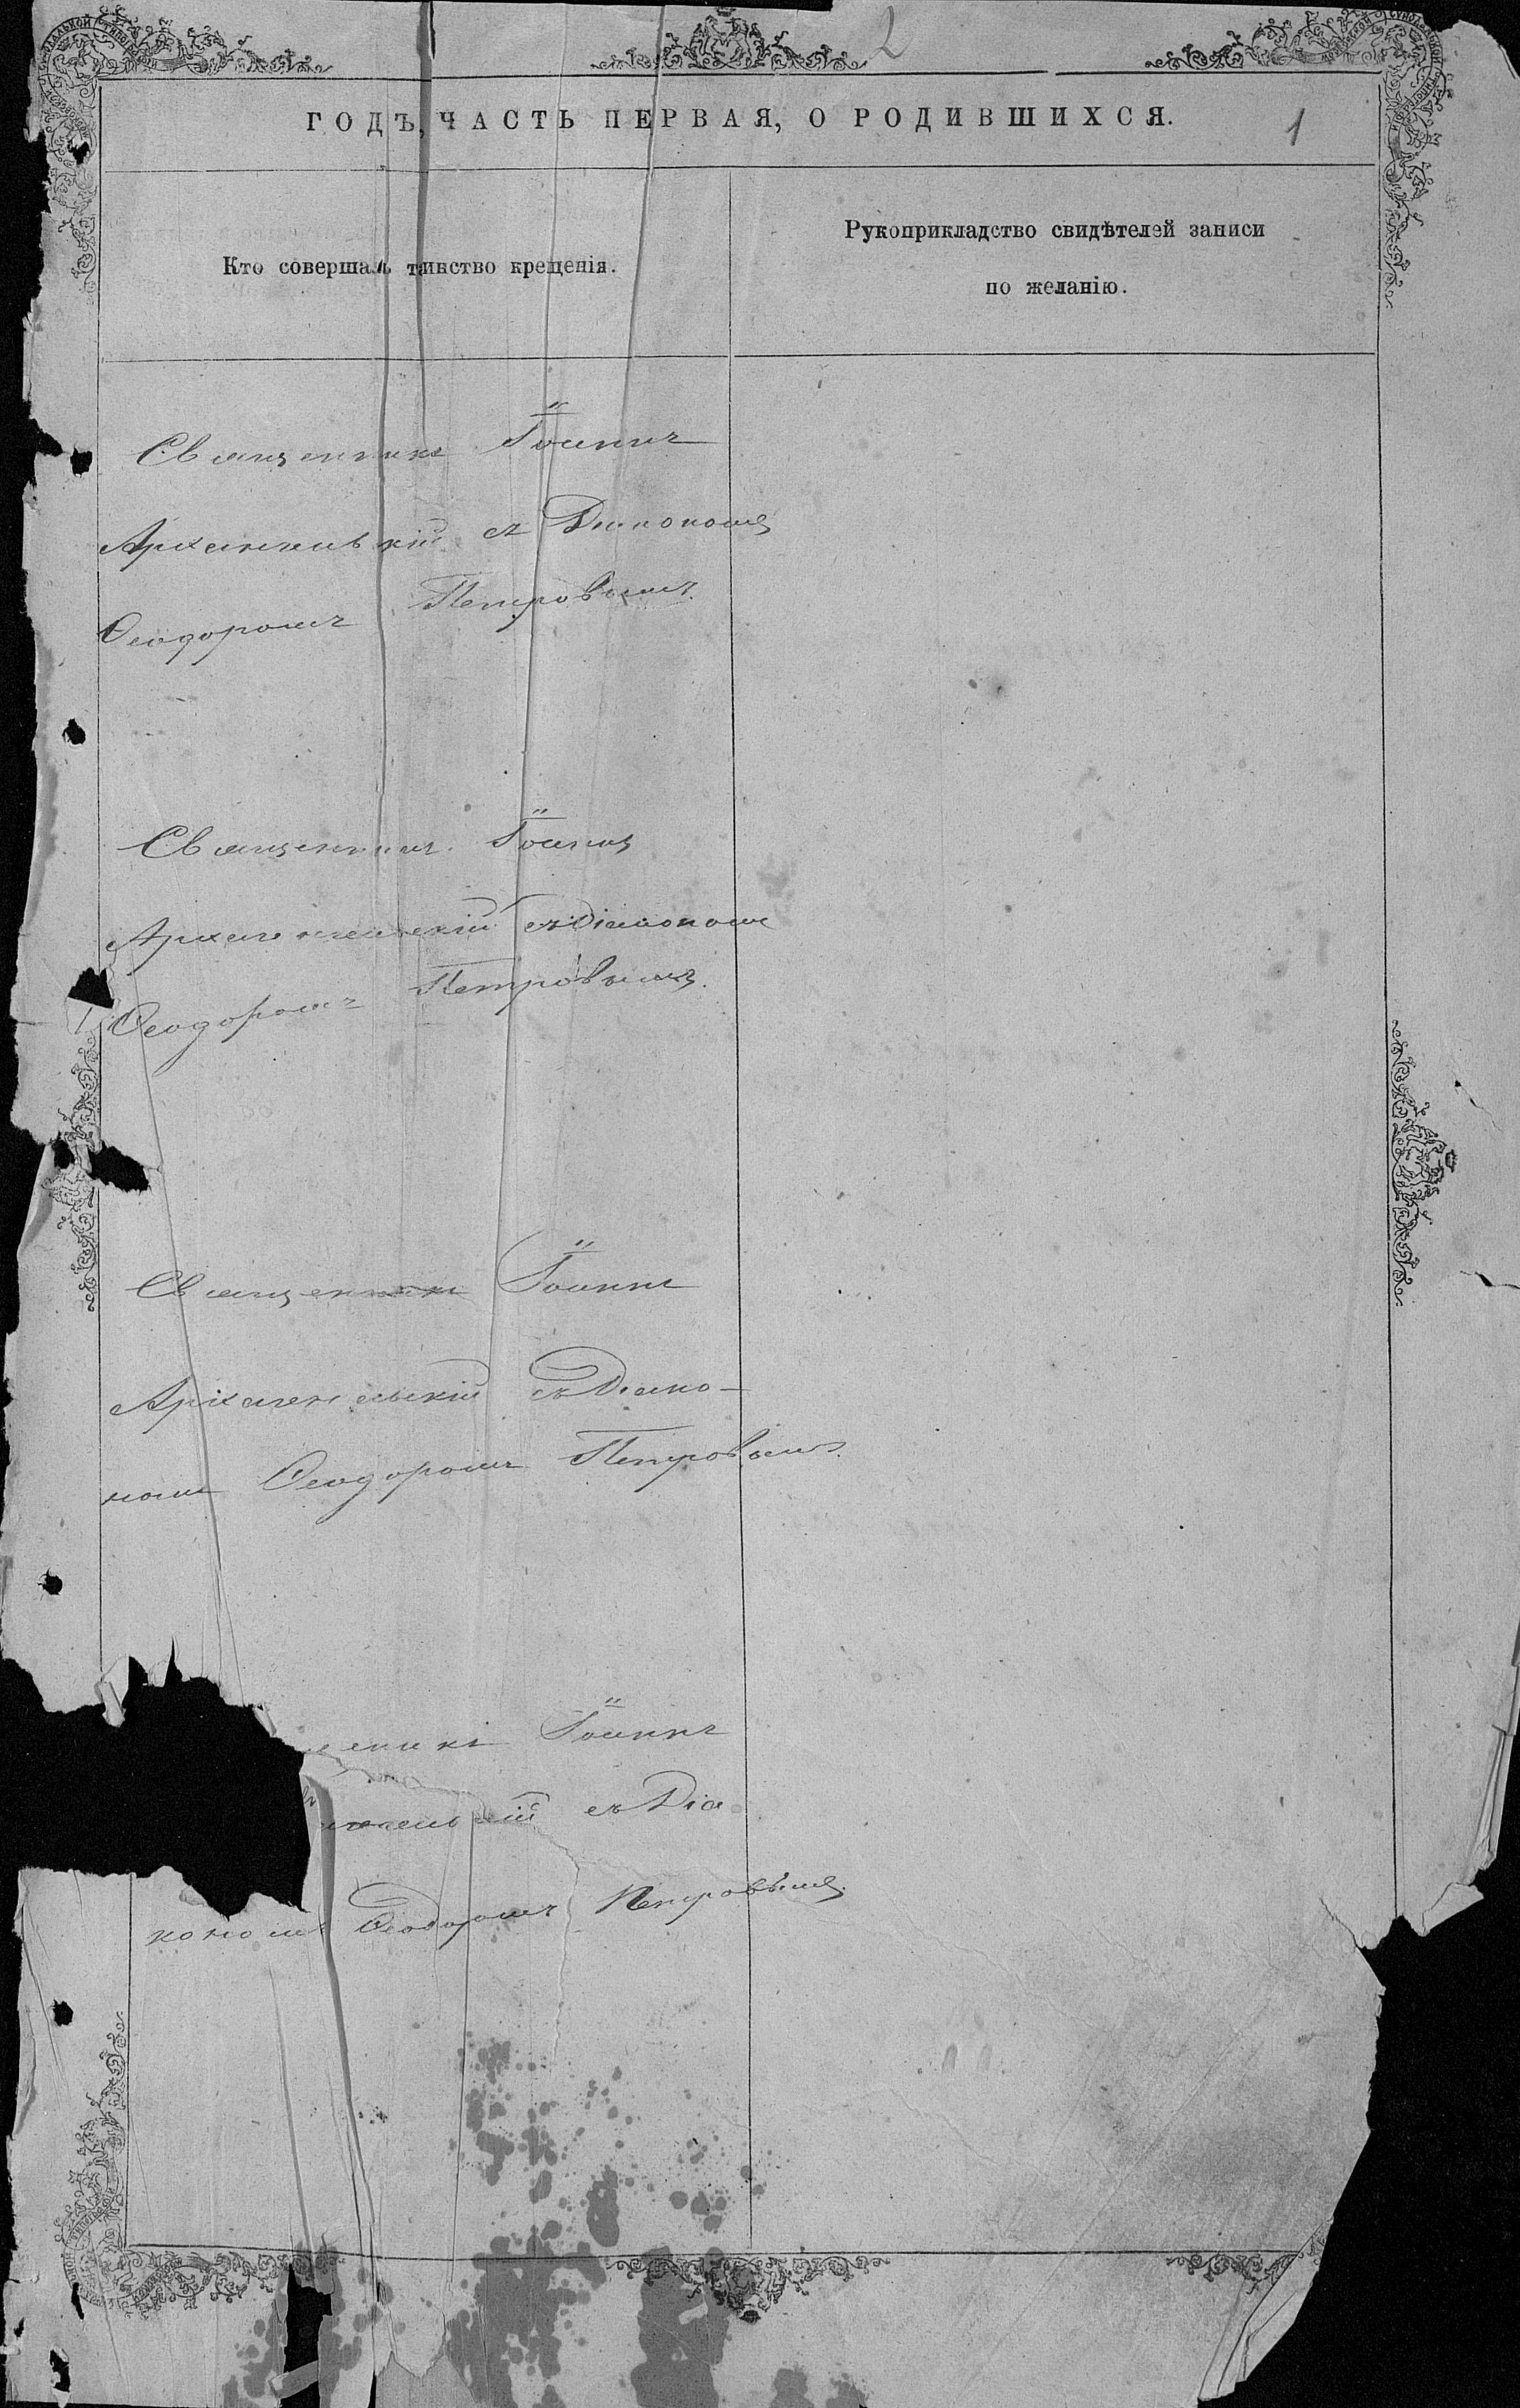 2
ГОДЪ, ЧАСТЬ ПЕРВАЯ, О РОДИВШИХСЯ.
1
Кто совершалъ таинство крещенія.
Рукоприкладство свидѣтелей записи
по желанію.
Священникъ Іоаннъ
Архангельскій съ Діакономъ
Ѳеодоромъ Петровымъ.
Священникъ Іоаннъ
Архангельскій съ Діакономъ
Ѳеодоромъ Петровымъ.
Священникъ Іоаннъ
Архангельскій съ Діако-
номъ Ѳеодоромъ Петровымъ.
енникъ Іоаннъ
ангельскій съ Діа
кономъ Ѳеодоромъ Петровымъ.